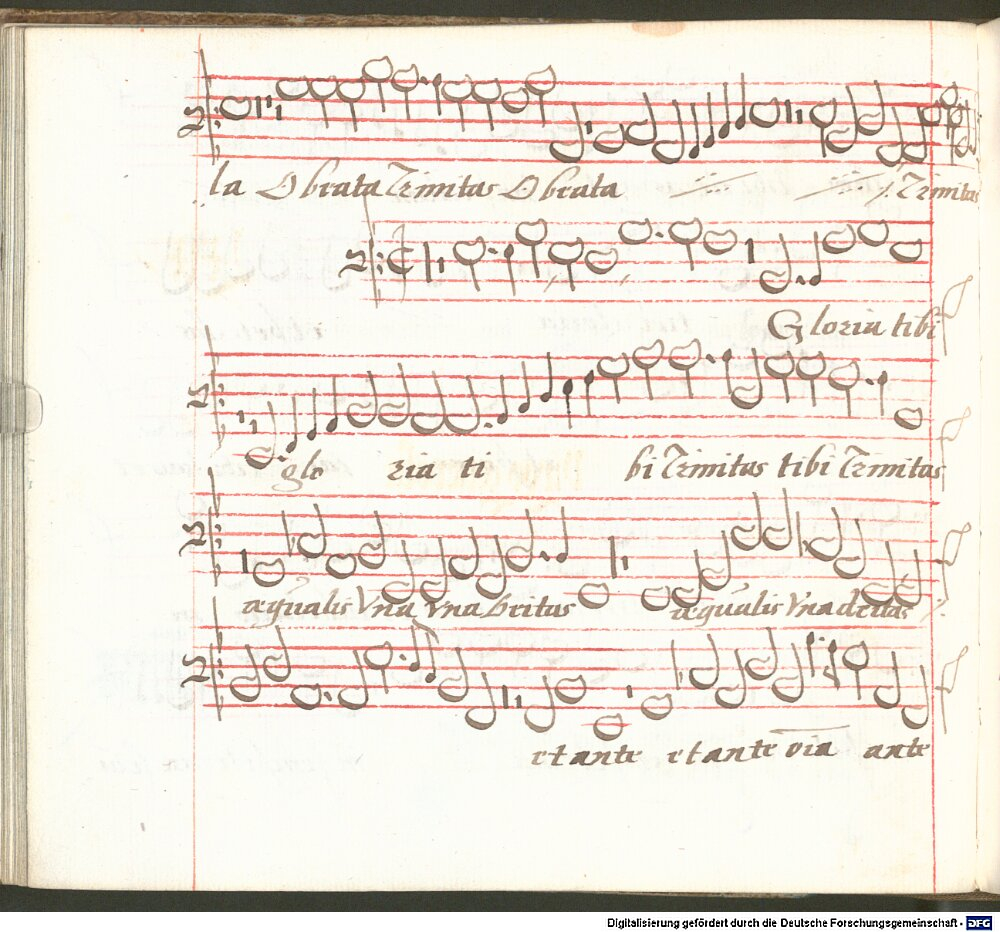 la O beata Trinitas O beata :||: :||: Trinitas
Gloria tibi
glo ria ti bi Trinitas tibi Trinitas
æqualis Vna Vna deitas æqualis Vna deitas
et ante et ante oia ante
Digitalisierung gefördert durch die Deutsche Forschungsgemeinschaft - DFG